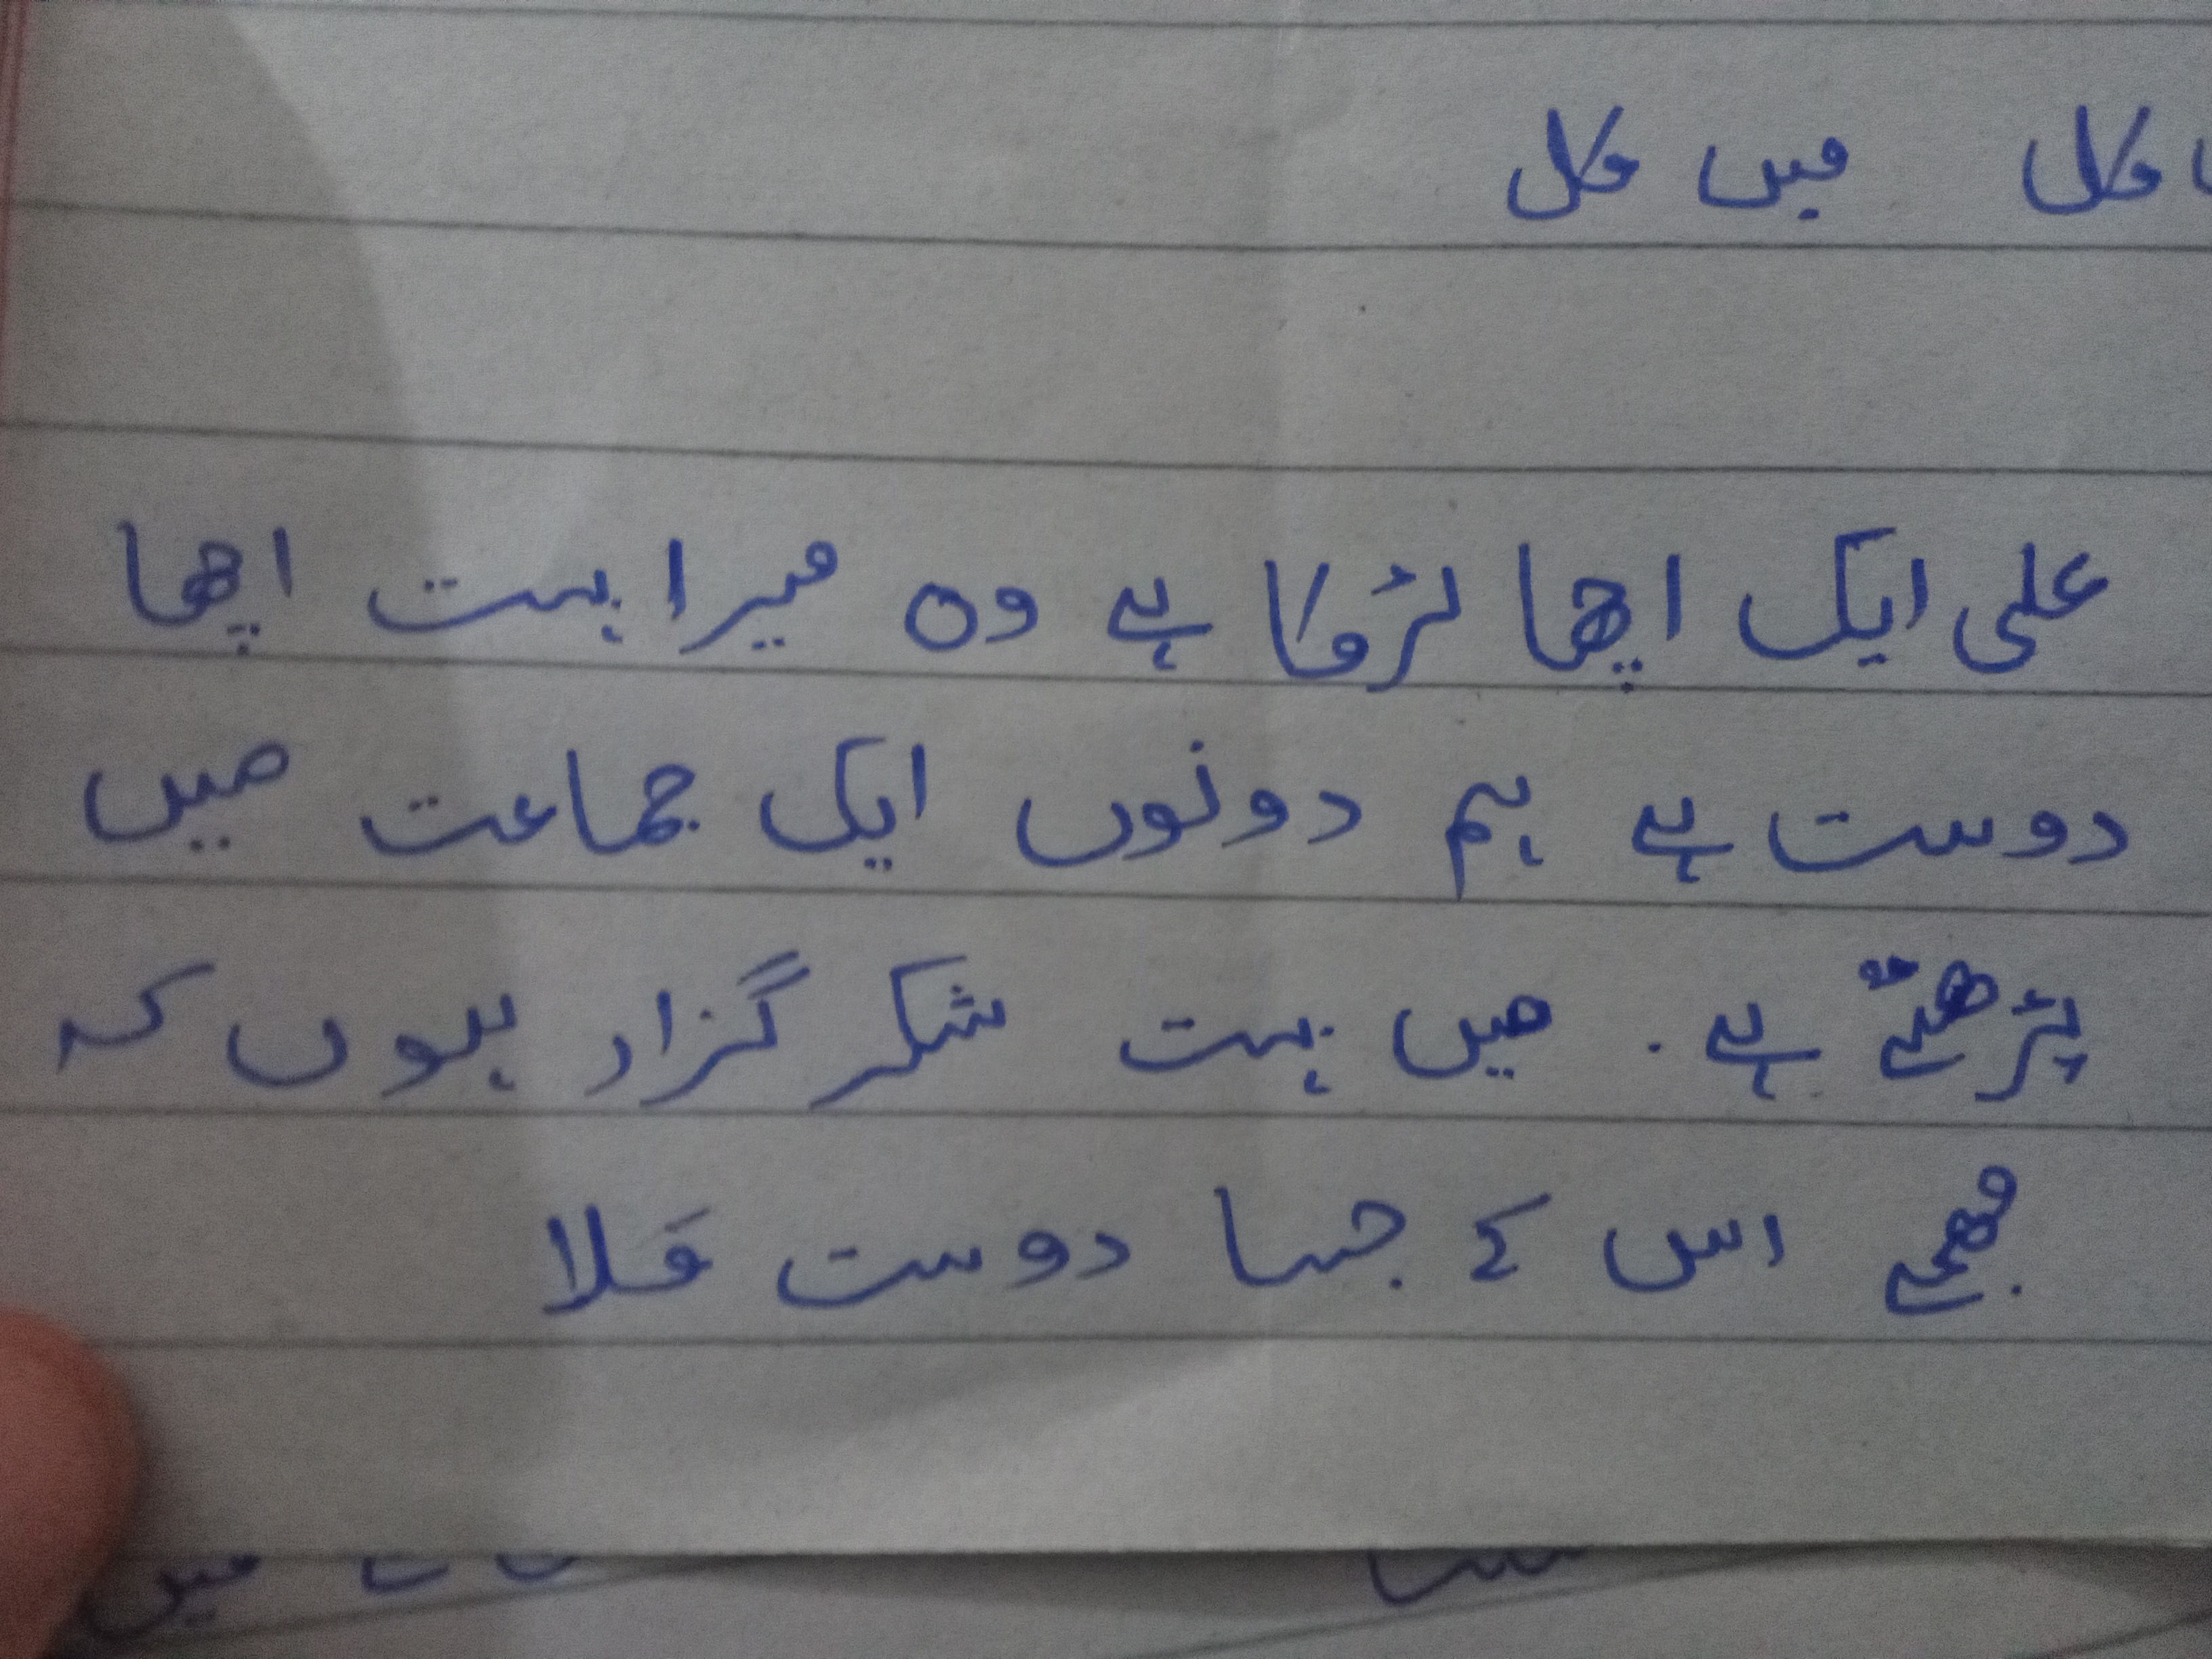 کل میں کل
علی ایک اچھا لڑکا ہے وہ میرا بہت اچھا
دوست ہے ہم دونوں ایک جماعت میں
پڑھتے ہے. میں بہت شکر گزار ہوں کہ
مجھے اس کے جیسا دوست ملا
میں